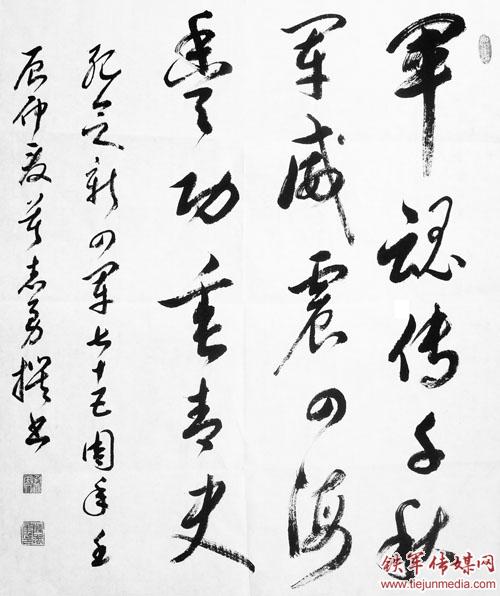 軍魂传千秋
军威震四海
豐功垂青史
纪念新四军七十五周年壬
辰仲夏志勇撰书
铁军传媒网
www.tiejunmedia.com